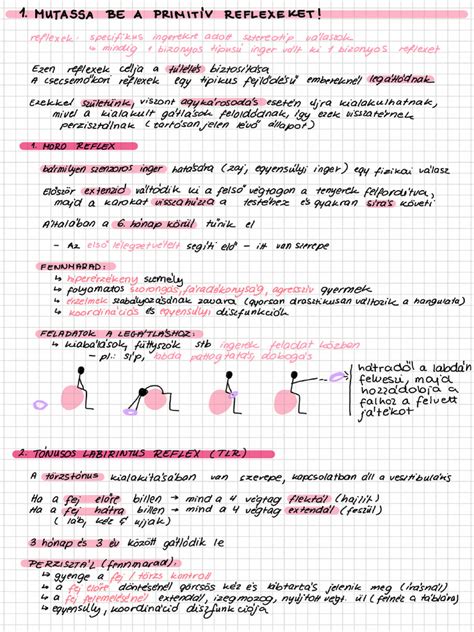 1. MUTASSA BE A PRIMITÍV REFLEXEKET!
reflexek - specifikus ingerekre adott sztereotip válaszok
↳ mindig 1 bizonyos típusú inger vált ki 1 bizonyos reflexet
Ezen reflexek célja a túlélés biztosítása
A csecsemőkori reflexek egy tipikus fejlődésű embereknél legátlódnak
Ezekkel születünk, viszont agykárosodás esetén újra kialakulhatnak,
mivel a kialakult gátlások feloldódnak, így ezek visszatérnek
perzisztálnak (tartósan jelen lévő állapot)
1. MORO REFLEX
bármilyen szenzoros inger hatására (zaj, egyensúlyi inger) egy fizikai válasz
Először extenzió váltódik ki a felső végtagon a tenyerek felfordítva,
majd a karokat visszahúzza a testéhez és gyakran sírás követi
Általában a 6. hónap körül tűnik el
- Az első lélegzetvételt segíti elő - itt van szerepe
FENNMARAD:
↳ hiperérzékeny személy
↳ folyamatos szorongás, fáradékonyság, agresszív gyermek
↳ érzelmek szabályozásának zavara (gyorsan drasztikusan változik a hangulata)
↳ koordinációs és egyensúlyi diszfunkció
FELADATOK A LEGÁTLÁSHOZ:
↳ kiabálások, füttyszók stb ingerek feladat közben
- pl.: síp, labda pattogtatás, dobogás
hátradől a labdán
felveszi, majd
hozzádobja a
falhoz a felvett
játékot
2. TÓNUSOS LABIRINTUS REFLEX (TLR)
A törzstónus kialakításában van szerepe, kapcsolatban áll a vestibuláris
Ha a fej előre billen → mind a 4 végtag flektál (hajlít)
Ha a fej hátra billen → mind a 4 végtag extendál (feszül)
(láb, kéz & ujjak)
3 hónap és 3 év között gátlódik le
PERZISZTÁL (fennmarad):
↳ gyenge a fej / törzs kontroll
↳ a fej előre döntésénél görcsös kéz és lábtartás jelenik meg (írásnál)
↳ a fej felemelésénél extendál, izegmozog, nyújtott végt. ül (felnéz a táblára)
↳ egyensúly, koordináció diszfunkciója